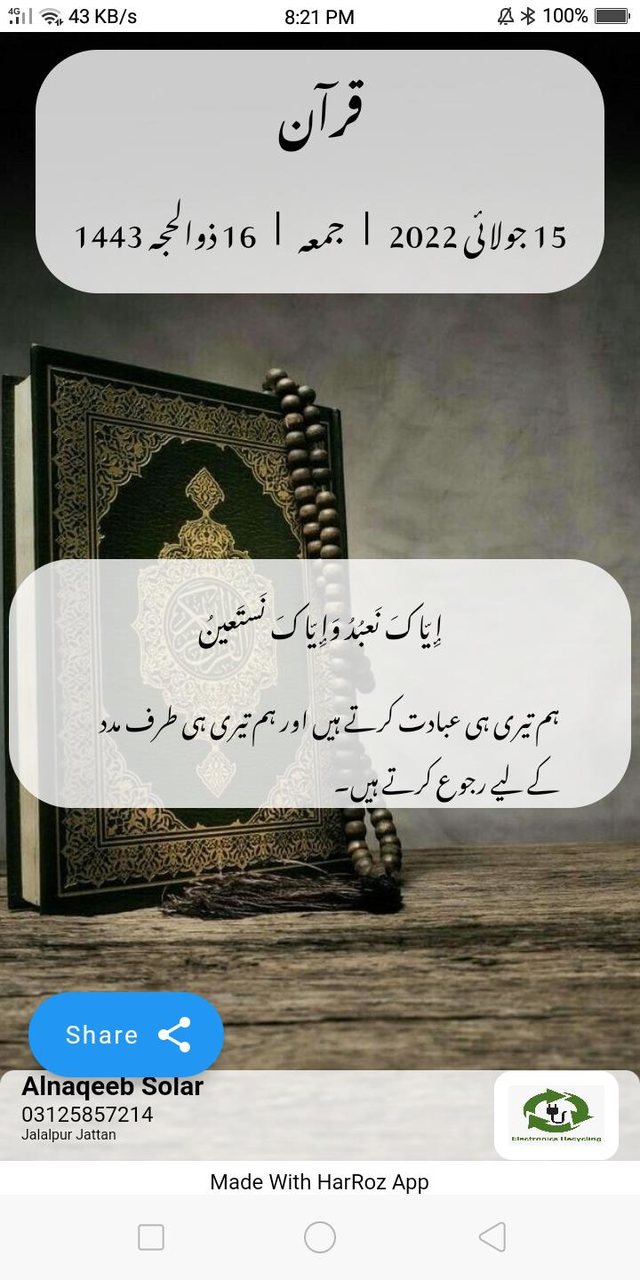 4G 43 KB/s 8:21 PM 100%
قرآن
15 جولائی 2022 | جمعہ | 16 ذوالحجہ 1443
إِيَّاكَ نَعبُدُ وَإِيَّاكَ نَستَعينُ
ہم تیری ہی عبادت کرتے ہیں اور ہم تیری ہی طرف مدد
کے لیے رجوع کرتے ہیں۔
Share
Alnaqeeb Solar
03125857214
Jalalpur Jattan
Electronics Recycling
Made With HarRoz App